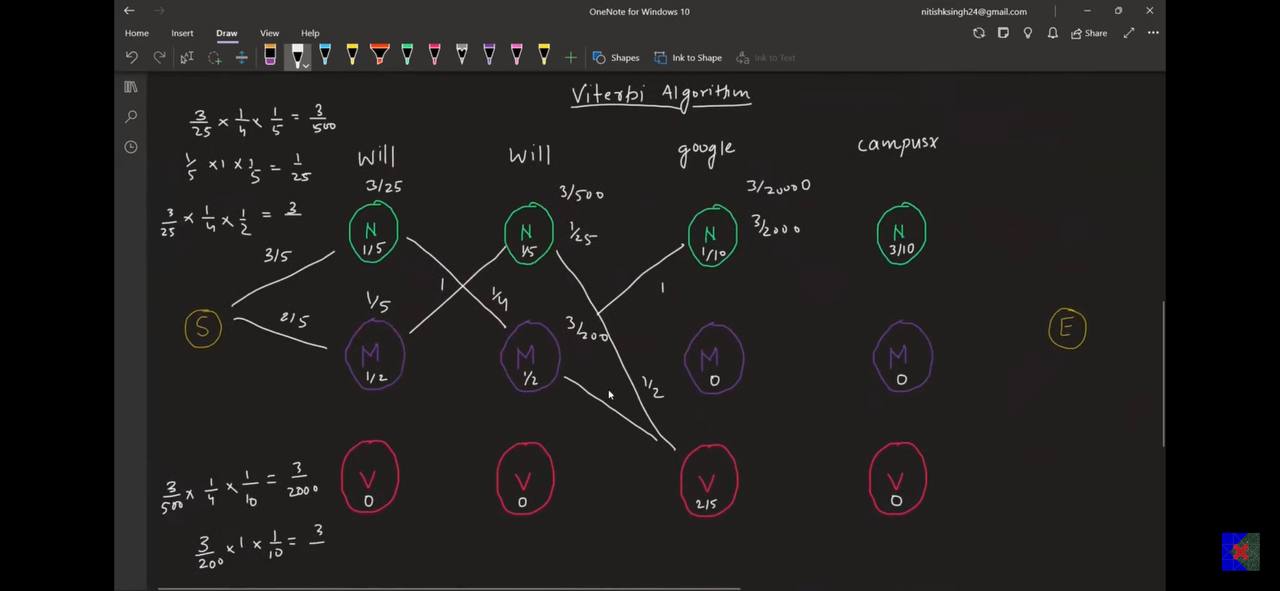 OneNote for Windows 10
nitishksingh24@gmail.com
Home Insert Draw View Help
Share
Shapes
Ink to Shape
Ink to Text
Viterbi Algorithm
3/25 × 1/4 × 1/5 = 3/500
1/5 × 1 × 1/5 = 1/25
3/25 × 1/4 × 1/2 = 3
will will google campusx
3/25 3/500 3/20000
1/25 3/2000
N 1/5
N 1/5
N 1/10
N 3/10
3/5
1 1/4 1
S
2/5
1/5
3/200
E
M 1/2
M 1/2
M 0
M 0
1/2
V 0
V 0
V 2/5
V 0
3/500 × 1/4 × 1/10 = 3/2000
3/200 × 1 × 1/10 = 3